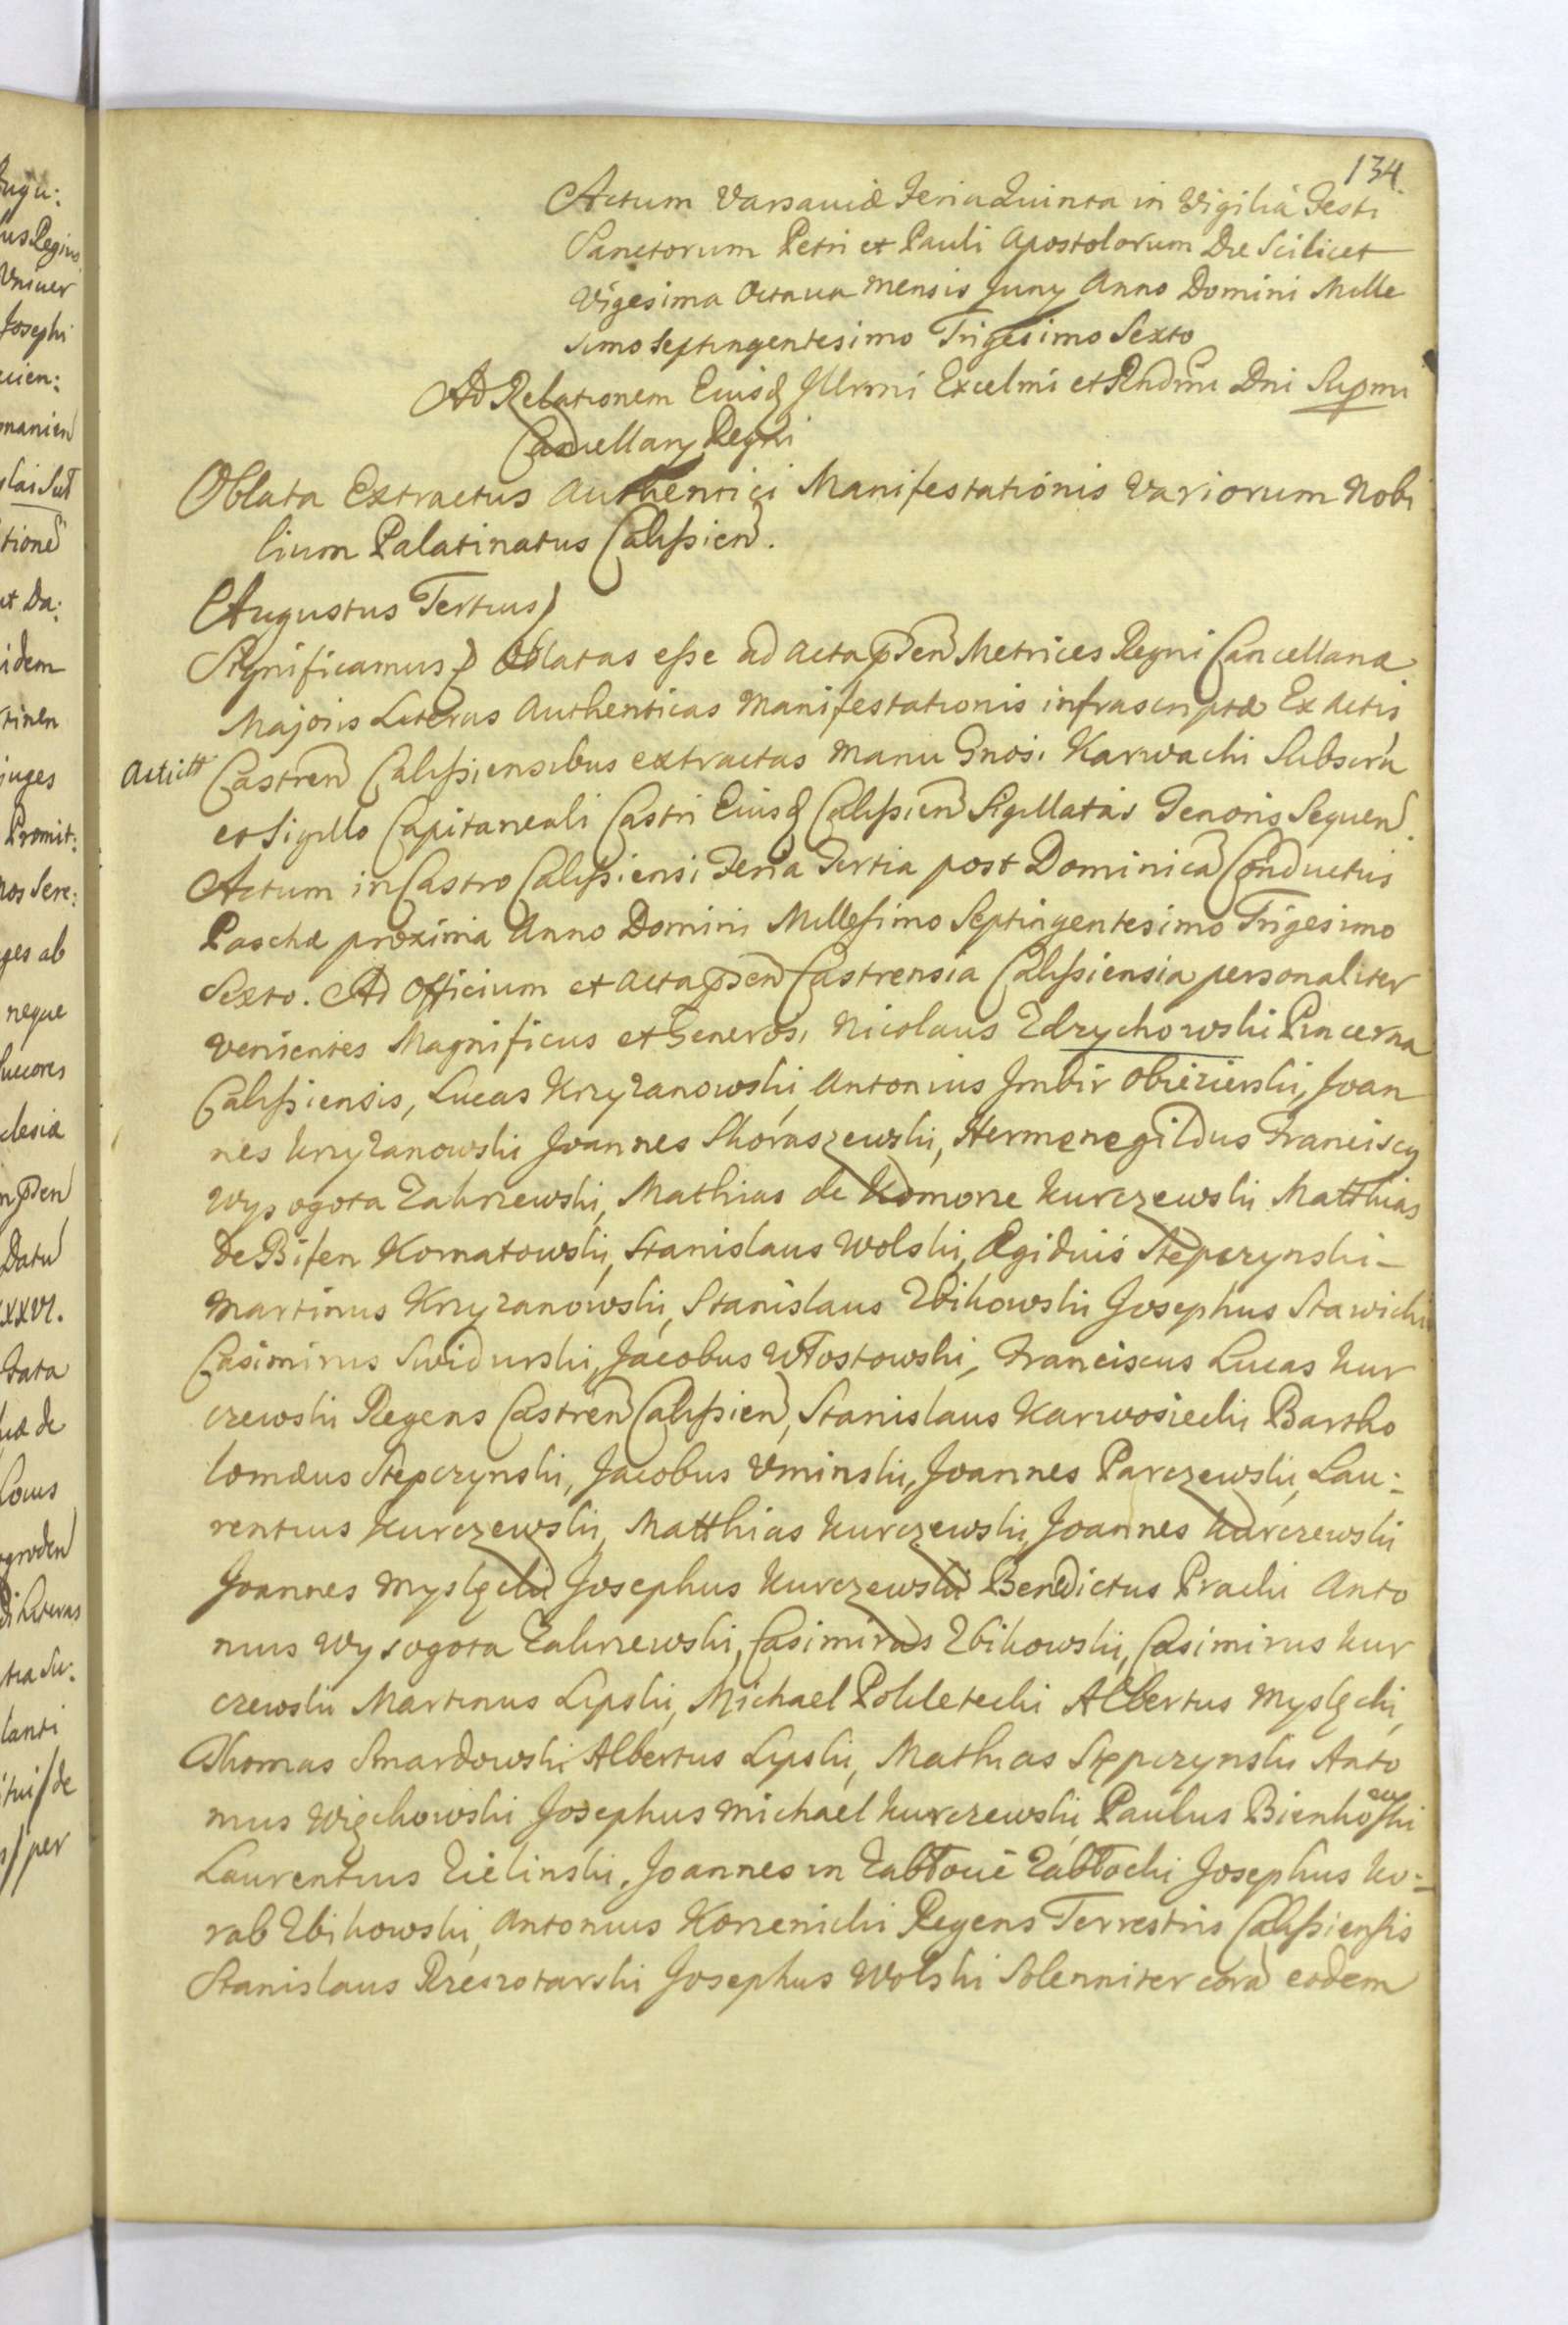 134.
Actum Varsaviæ Feria Quinta in Vigilia Festi
Sanctorum Petri et Pauli Apostolorum Die Scilicet
Vigesima Octava mensis Juny Anno Domini Mille
simo Septingentesimo Trigesimo Sexto
Ad Relationem Eiusq Illrmi Excelmi et Rndmi Dni Supmi
Cancellary Regni
Oblata Extractus Authentici Manifestationis Variorum Nobi
lium Palatinatus Calissien.
Augustus Tertius)
Significamus) Oblatas esse ad Acta pden Metrices Regni Cancellariæ
Majoris Literas Authenticas Manifestationis infrascriptæ Ex Actis
Castren Calissiensibus extractas manu Gnosi Karwachi Subscra
et Sigillo Capitaneali Castri Eiusq Calissien Sigillatas Tenoris Sequen.
Actum in Castro Calissiensi Feria Tertia post Dominica Conductus
Paschæ proxima Anno Domini Millesimo Septingentesimo Trigesimo
Sexto. Ad Officium et Acta pden Castrensia Calissiensia personaliter
venientes Magnificus et Generosi Nicolaus Zdrychowski Pincerna
Calissiensis, Lucas Krzyzanowski, Antonius Jmbir Obiezierski, Joan
nes Krzyzanowski Joannes Skoraszewski, Hermenegildus Franciscg
Wysogota Zakrzewski, Mathias de Komorze Kurczewski Matthias
de Bifen Komatowski, Stanislaus Wolski, Ægidius Stepczynski-
Martinus Krzyzanowski, Stanislaus Zbikowski Josephus Stawicki
Casimirus Swidurski, Jacobus Włostowski, Franciscus Lucas Kur
czewski Regens Castren Calissien, Stanislaus Karwosiecki Bartho
lomæus Stepczynski, Jacobus Uminski, Joannes Parczewski, Lau:
rentius Kurczewski, Matthias Kurczewski, Joannes Kurczewski
Joannes Myslęcki Josephus Kurczewski Benedictus Pracki Anto
nius Wysogota Zakrzewski, Casimirus Zbikowski, Casimirus Kur
czewski Martinus Lipski, Michael Pokletecki Albertus Myslęcki,
Thomas Smardowski Albertus Lipski, Mathias Stępczynski Anto
nius Więckowski Josephus Michael Kurczewski, Paulus Bienkowski
Laurentius Zielinski, Joannes in Zabłocie Zabłocki Josephus Ko:
rab Zbikowski, Antonius Korzenicki Regens Terrestris Calissiensis
Stanislaus Josephus Wolski Solenniter cora eodem